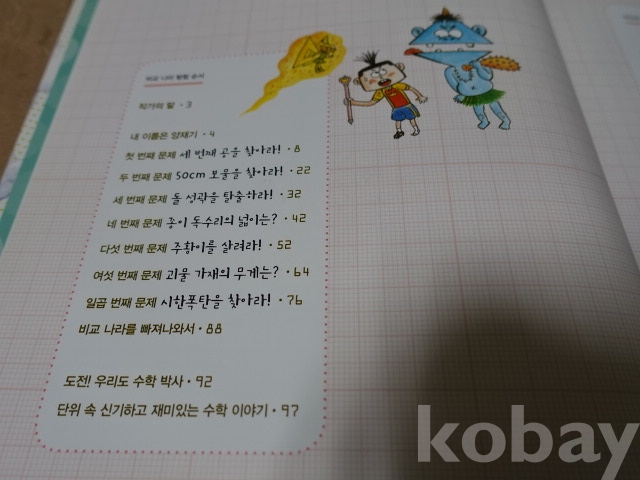 비교 나라 탐험 순서
작가의 말 · 3
내 이름은 양재기 · 4
첫 번째 문제 세 번째 공을 찾아라! · 8
두 번째 문제 50cm 보물을 찾아라! · 22
세 번째 문제 돌 성곽을 탈출하라! · 32
네 번째 문제 종이 독수리의 넓이는? · 42
다섯 번째 문제 주황이를 살려라! · 52
여섯 번째 문제 괴물 가재의 무게는? · 64
일곱 번째 문제 시한폭탄을 찾아라! · 76
비교 나라를 빠져나와서 · 88
도전! 우리도 수학 박사 · 92
단위 속 신기하고 재미있는 수학 이야기 · 97
kobay